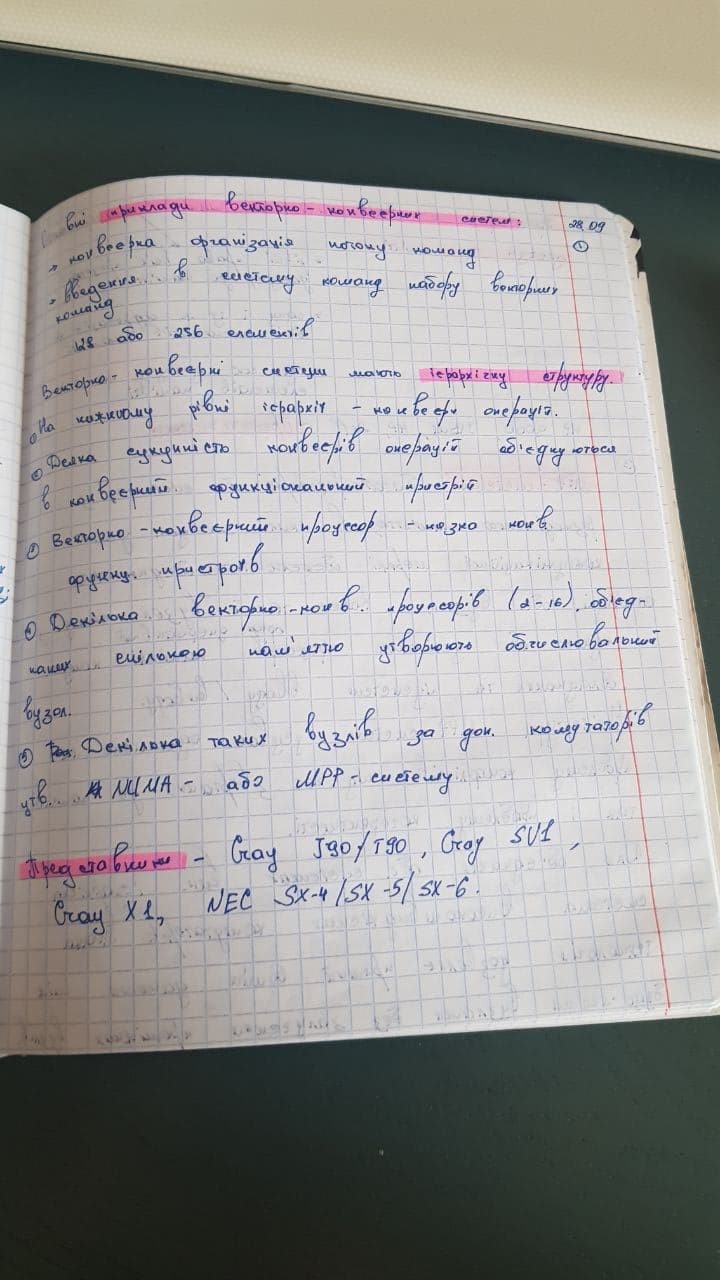 вні приклади векторно-конвеєрних систем: 28.09
> конвеєрна організація потоку команд ①
> Введення в систему команд набору векторних
команд
128 або 256 елементів
Векторно-конвеєрні системи мають ієрархічну структуру.
На кожному рівні ієрархії - конвеєри операцій.
Деяка сукупність конвеєрів операцій об'єднуються
в конвеєрний функціональний пристрій
Векторно-конвеєрний процесор - низка конв.
функц. пристроїв
Декілька векторно-конв. процесорів (2-16), об'єд-
наних спільною пам'яттю утворюють обчислювальний
вузол.
⑤ Декілька таких вузлів за доп. комутаторів
утв. NUMA- або MPP-систему
Представники - Cray J90/T90, Cray SV1,
Cray X1, NEC SX-4/SX-5/SX-6.